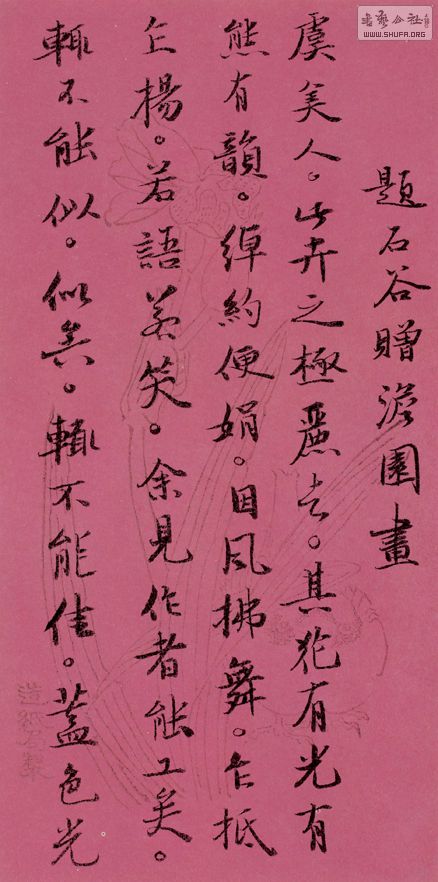 題石谷贈澹園畫
虞美人。此卉之極麗者。其花有光有
態有韻。綽約便娟。因風拂舞。乍抵
乍揚。若語若笑。余見作者能工矣。
輒不能似。似矣。輒不能佳。蓋色光
書藝公社
WWW.SHUFA.ORG